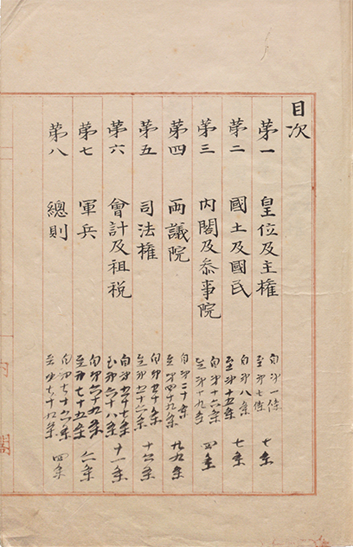 目次
第一 皇位及主権 自第一條 至第七條 七条
第二 國土及國民 自第八條 至第十五条 七条
第三 内閣及叅事院 自第十六条 至第十九条 四条
第四 両議院 自第二十条 至第四十九条 廿九条
第五 司法権 自第五十条 至第五十六条
第六 會計及祖税 自第五十七条 至第六十八条 十一条
第七 軍兵 自第六十九条 至第七十五条 六条
第八 總則 自第七十六条 至第七十九条 四条